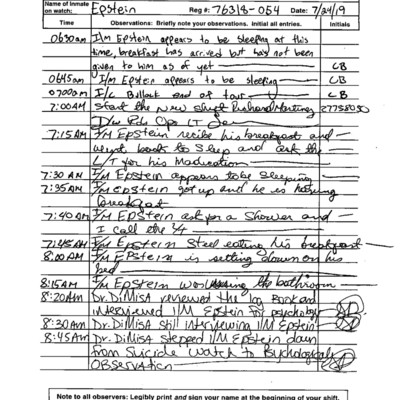 Name of Inmate on watch: Epstein Reg #: 76318-054 Date: 7/24/19
Time Observations: Briefly note your observations. Initial all entries. Initials
0630am I/m Epstein appears to be sleeping at this
time, breakfast has arrived but has not been
given to him as of yet CB
0645am I/m Epstein appears to be sleeping CB
0700am I/C Bullock end of tour CB
7:00AM Start the new shift Richard
7:15AM I/M EPSTEIN recibe his breakfast and
went back to sleep and ask the
L/T for his Madication
7:30 AM I/M EPSTEIN appears to be sleeping
7:35AM I/M EPSTEIN got up and he is having
breakfast
7:40AM I/M EPSTEIN ask for a Shower and
I call the
7:45AM I/M EPSTEIN Steel eating his breakfast
8:00AM I/M EPSTEIN is setting down on his
bed
8:15AM I/M EPSTEIN was using the bathroom
8:20AM Dr. DiMisA reviewed the log Book and
interviewed I/M Epstein for psychology
8:30AM Dr. DiMisA still interviewing I/M Epstein
8:45AM Dr. DiMisA stepped I/M Epstein down
from Suicide Watch to Psychological
OBservation
Note to all observers: Legibly print and sign your name at the beginning of your shift.